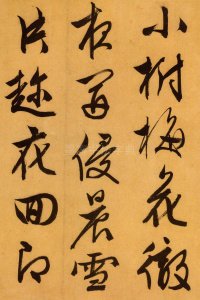 小樹梅花徹
夜開侵晨雪
片趁花回即